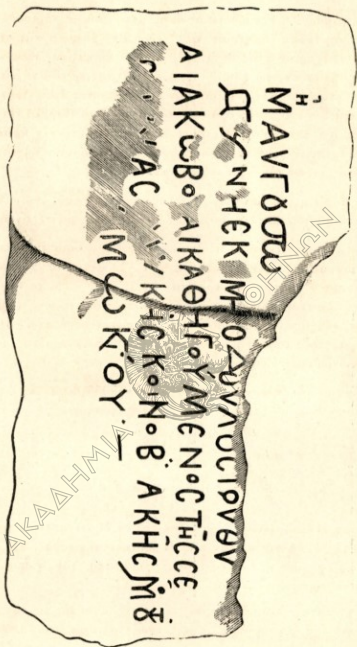 ΜΑVΓȣϹΤω
ΔΥΝΗΕΚ ΜΗΟΔȣΛΟϹ
ΑΙΑΚωΒΟ ΑΙΚΑΘΗΓΟΥΜΕΝΟϹΤΗϹϹΕ
ΙΑϹ ΥΚΗϹΚΟΙΝΟΒ ΑΚΗϹΜȣ
ΜωΚΟΥ·—
ΑΚΑΔΗΜΙΑ ΑΘΗΝΩΝ